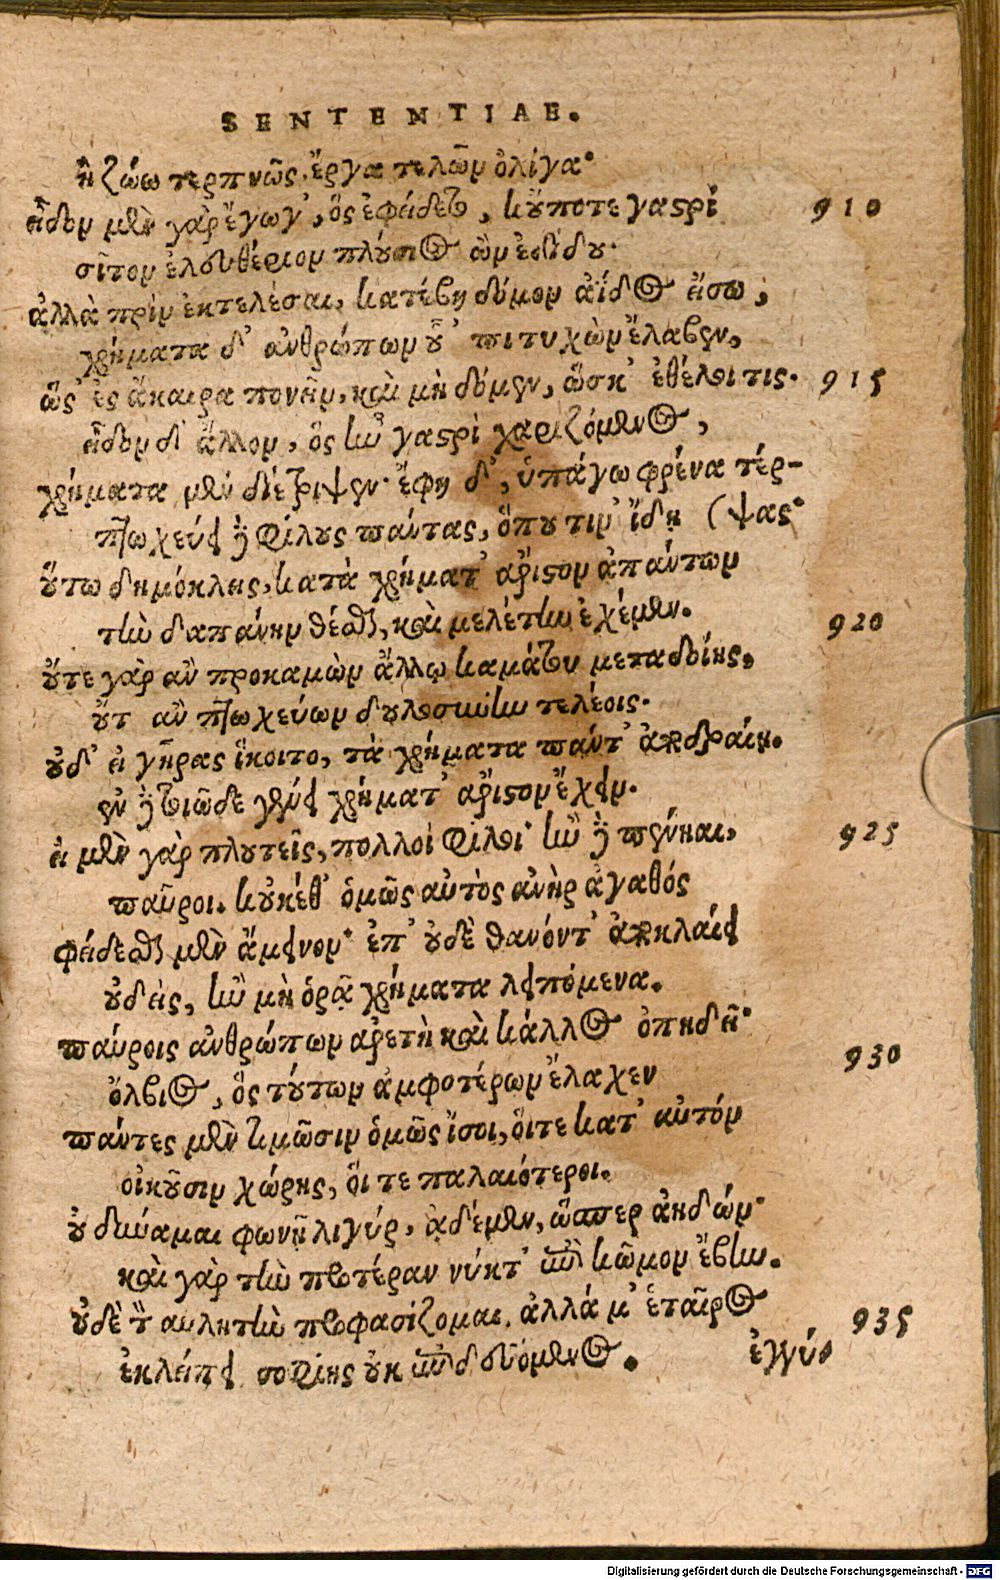 SENTENTIAE.
ἢ ζώω τερπνῶς, ἔργα τελῶν ὀλίγα·
εἶδον μὲν γὰρ ἔγωγ', ὃς ἐφείδετο, κοὔποτε γαστρὶ 910
σῖτον ἐλευθέριον πλούσιος ὢν ἐδίδου·
ἀλλὰ πρὶν ἐκτελέσαι, κατέβη δόμον ἄϊδος εἴσω,
χρήματα δ' ἀνθρώπων οὗ 'πιτυχὼν ἔλαβεν,
ὥς' ἐς ἄκαιρα πονεῖν, καὶ μὴ δόμεν, ᾧσκ' ἐθέλοι τις. 915
εἶδον δ' ἄλλον, ὃς ἣν γαστρὶ χαριζόμενος,
χρήματα μὲν διέτριψεν· ἔφη δ', ὑπάγω φρένα τέρ-
πτωχεύει δὲ φίλους πάντας, ὅπου τιν' ἴδῃ (ψας·
οὕτω δημόκλεις, κατὰ χρήματ' ἄριστον ἁπάντων
τὴν δαπάνην θέσθαι, καὶ μελέτην ἐχέμεν. 920
οὔτε γὰρ ἂν προκαμὼν ἄλλῳ καμάτου μεταδοίης,
οὔτ ἂν πτωχεύων δουλοσύνην τελέοις.
οὐδ' εἰ γῆρας ἵκοιτο, τὰ χρήματα πάντ' ἀποδραίη.
ἐν δὲ τοιῶδε γένει χρήματ' ἄριστον ἔχειν.
εἰ μὲν γὰρ πλουτεῖς, πολλοὶ φίλοι· ἢν δὲ πένηαι, 925
παῦροι. κοὐκέθ' ὁμῶς αὐτὸς ἀνὴρ ἀγαθός
φείδεσθαι μὲν ἄμεινον· ἐπ' οὐδὲ θανόντ' ἀποκλαίει
οὐδεὶς, ἢν μὴ ὁρᾷ χρήματα λειπόμενα.
παύροις ἀνθρώπων ἀρετὴ καὶ κάλλος ὀπηδεῖ·
ὄλβιος, ὃς τούτων ἀμφοτέρων ἔλαχεν 930
πάντες μὲν τιμῶσιν ὁμῶς ἴσοι, οἵτε κατ' αὐτόν
οἰκοῦσιν χώρης, οἵ τε παλαιότεροι.
οὐ δύναμαι φωνῇ λιγύρ, ἀδέμεν, ὥσπερ ἀηδών·
καὶ γὰρ τὴν προτέραν νύκτ' ἐπὶ κῶμον ἔβην.
οὐδὲ τὸν αυλητὴν προφασίζομαι, ἀλλά μ' ἑταῖρος 935
ἐκλείπει σοφίης οὐκ ἐπιδευόμενος.
ἐγγύ-